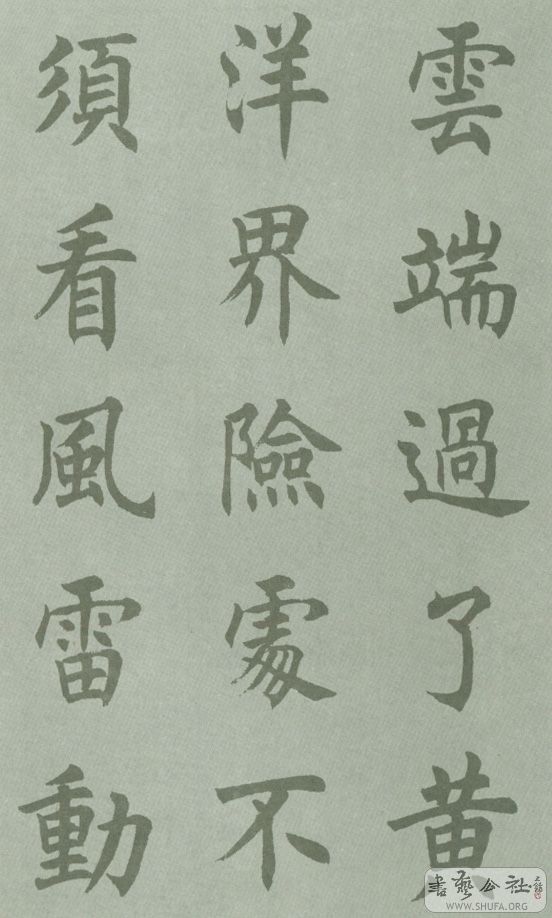 雲端過了黄
洋界險處不
須看風雷動
書藝公社
WWW.SHUFA.ORG